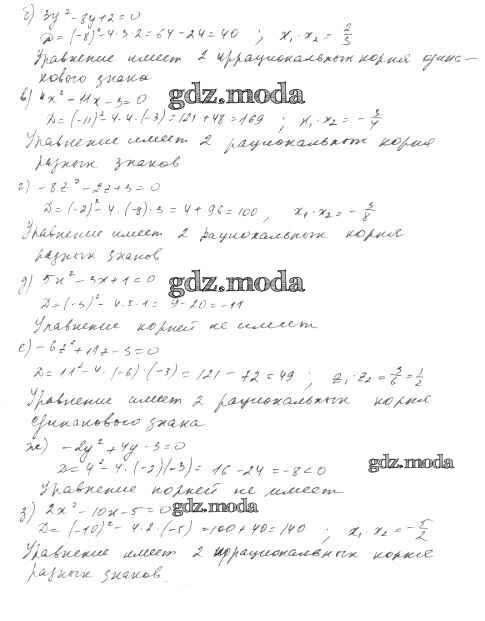 б) 3y² - 8y + 2 = 0
D = (-8)² - 4·3·2 = 64 - 24 = 40 ; x₁·x₂ = 2/3
Уравнение имеет 2 иррациональных корня одина-
кового знака
в) 4x² - 11x - 3 = 0
gdz.moda
D = (-11)² - 4·4·(-3) = 121 + 48 = 169 ; x₁·x₂ = -3/4
Уравнение имеет 2 рациональных корня
разных знаков
г) -8z² - 2z + 3 = 0
D = (-2)² - 4·(-8)·3 = 4 + 96 = 100, x₁·x₂ = -3/8
Уравнение имеет 2 рациональных корня
разных знаков
д) 5x² - 3x + 1 = 0
gdz.moda
D = (-3)² - 4·5·1 = 9 - 20 = -11
Уравнение корней не имеет
е) -6z² + 11z - 3 = 0
D = 11² - 4·(-6)·(-3) = 121 - 72 = 49 ; z₁·z₂ = 3/6 = 1/2
Уравнение имеет 2 рациональных корня
одинакового знака
ж) -2y² + 4y - 3 = 0
D = 4² - 4·(-2)(-3) = 16 - 24 = -8 < 0
gdz.moda
Уравнение корней не имеет
з) 2x² - 10x - 5 = 0
gdz.moda
D = (-10)² - 4·2·(-5) = 100 + 40 = 140 ; x₁·x₂ = -5/2
Уравнение имеет 2 иррациональных корня
разных знаков